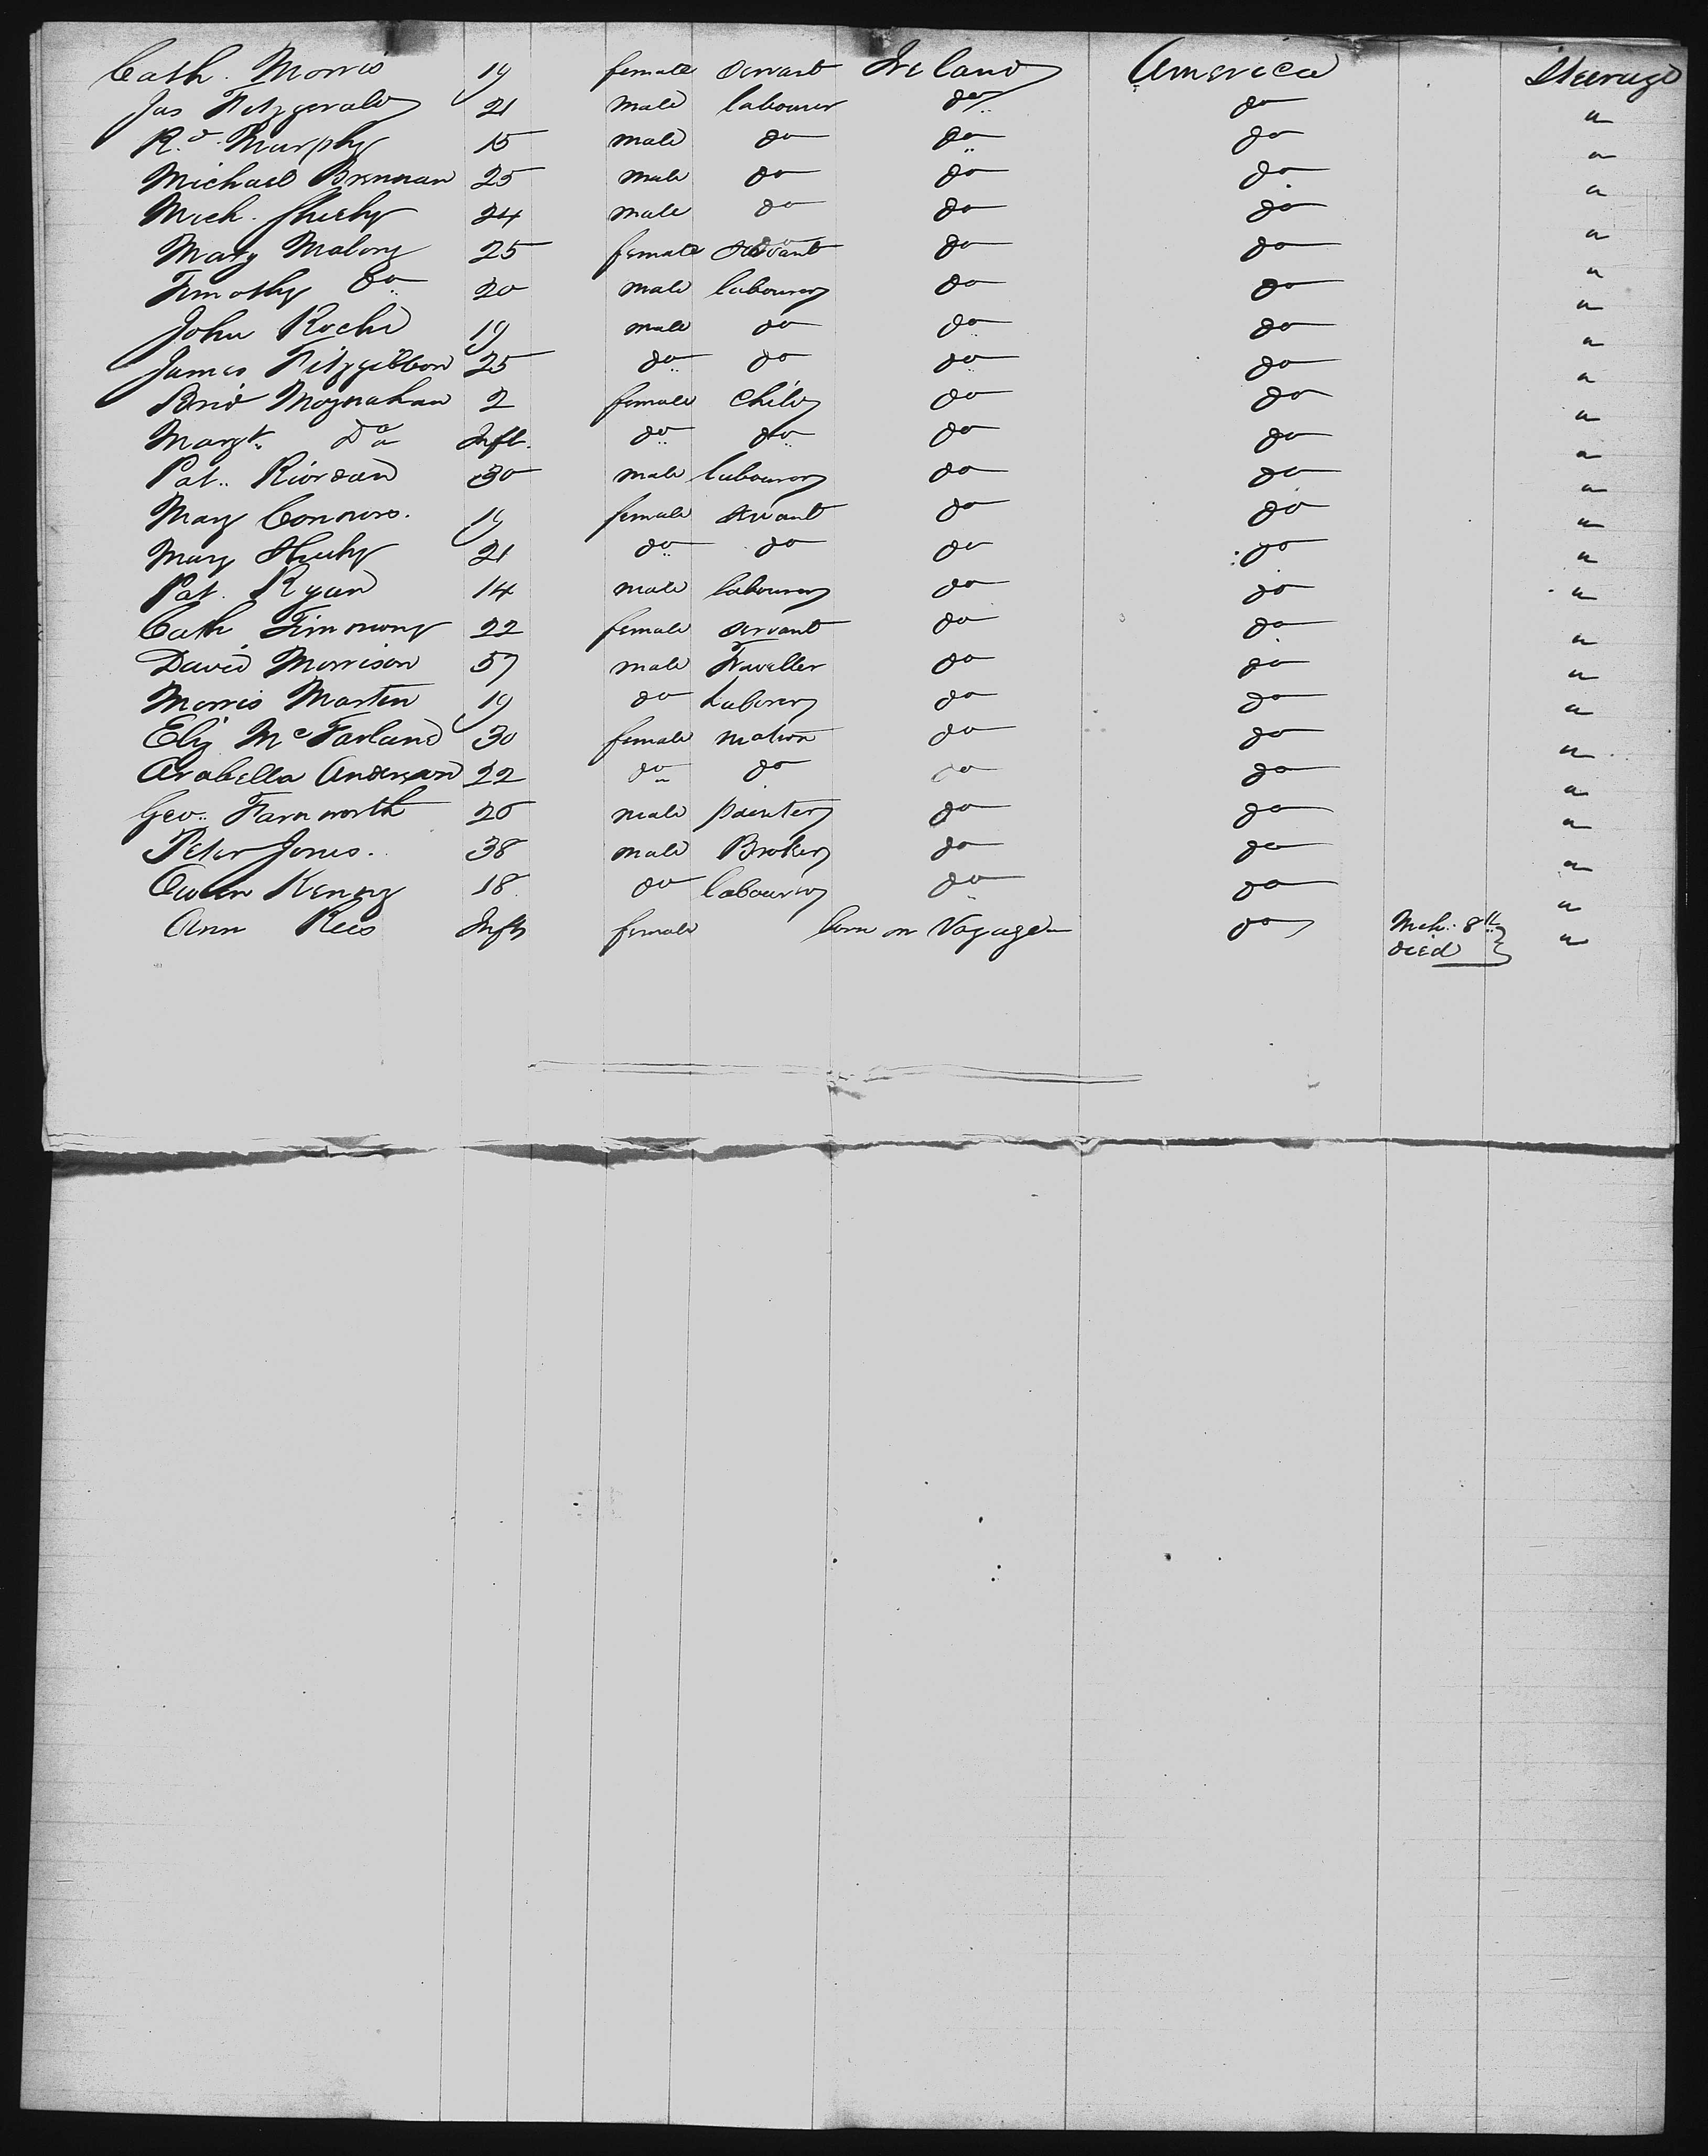 Cath. Morris 19 female Servant Ireland America Steerage
Jas Fitzgerald 21 male labourer do do "
Rd. Murphy 15 male do do do "
Michael Brennan 25 male do do do "
Mich. Sheehy 24 male do do do "
Mary Malony 25 female Servant do do "
Timothy do 20 male labourer do do "
John Roche 19 male do do do "
James Fitzgibbon 25 do do do do "
Brid Moynahan 2 female Child do do "
Margt. Do Inft. do do do do "
Pat. Riordan 30 male labourer do do "
Mary Connors. 19 female Servant do do "
Mary Sheehy 21 do do do do "
Pat. Ryan 14 male labourer do do "
Cath 22 female Servant do do "
David Morrison 57 male Traveller do do "
Morris Martin 19 do Laborer do do "
Eliz McFarland 30 female matron do do "
Arabella Anderson 22 do do do do "
Geo. Farnworth 20 male painter do do "
Peter Jones. 38 male Broker do do "
Owen Kenny 18 do labourer do do "
Ann Rees Inft female born on Voyage do Mch. 8th "
died